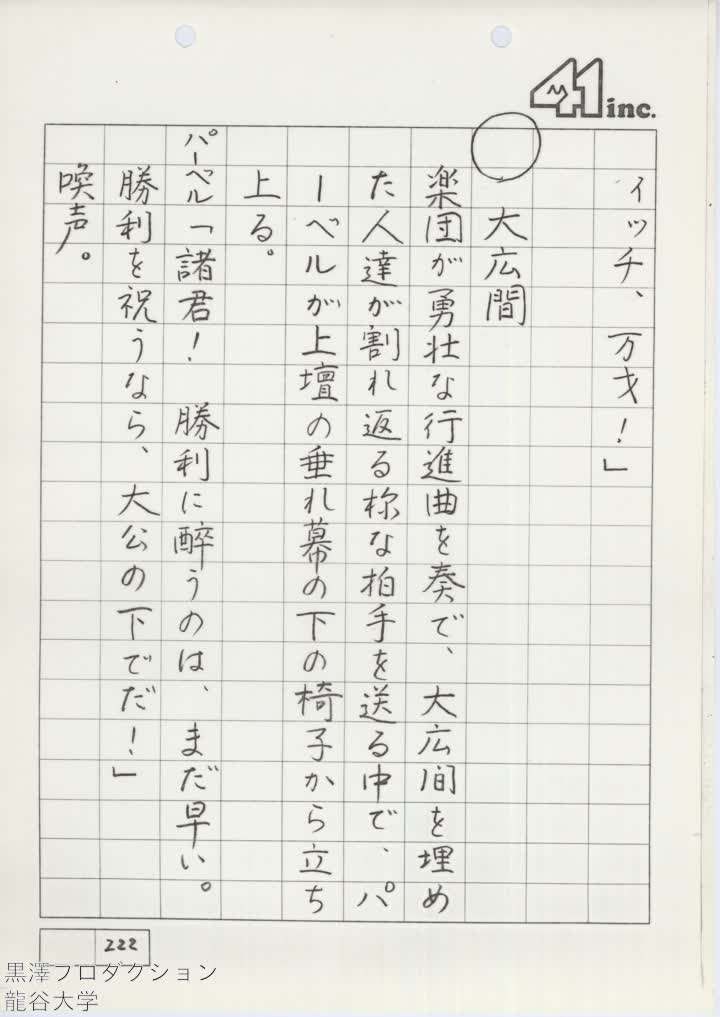 41 inc.
ィッチ、万才！」
○　大広間
楽団が勇壮な行進曲を奏で、大広間を埋め
た人達が割れ返る様な拍手を送る中で、パ
ーベルが上壇の垂れ幕の下の椅子から立ち
上る。
パーペル「諸君！　勝利に酔うのは、まだ早い。
勝利を祝うなら、大公の下でだ！」
喚声。
222
黒澤プロダクション
龍谷大学